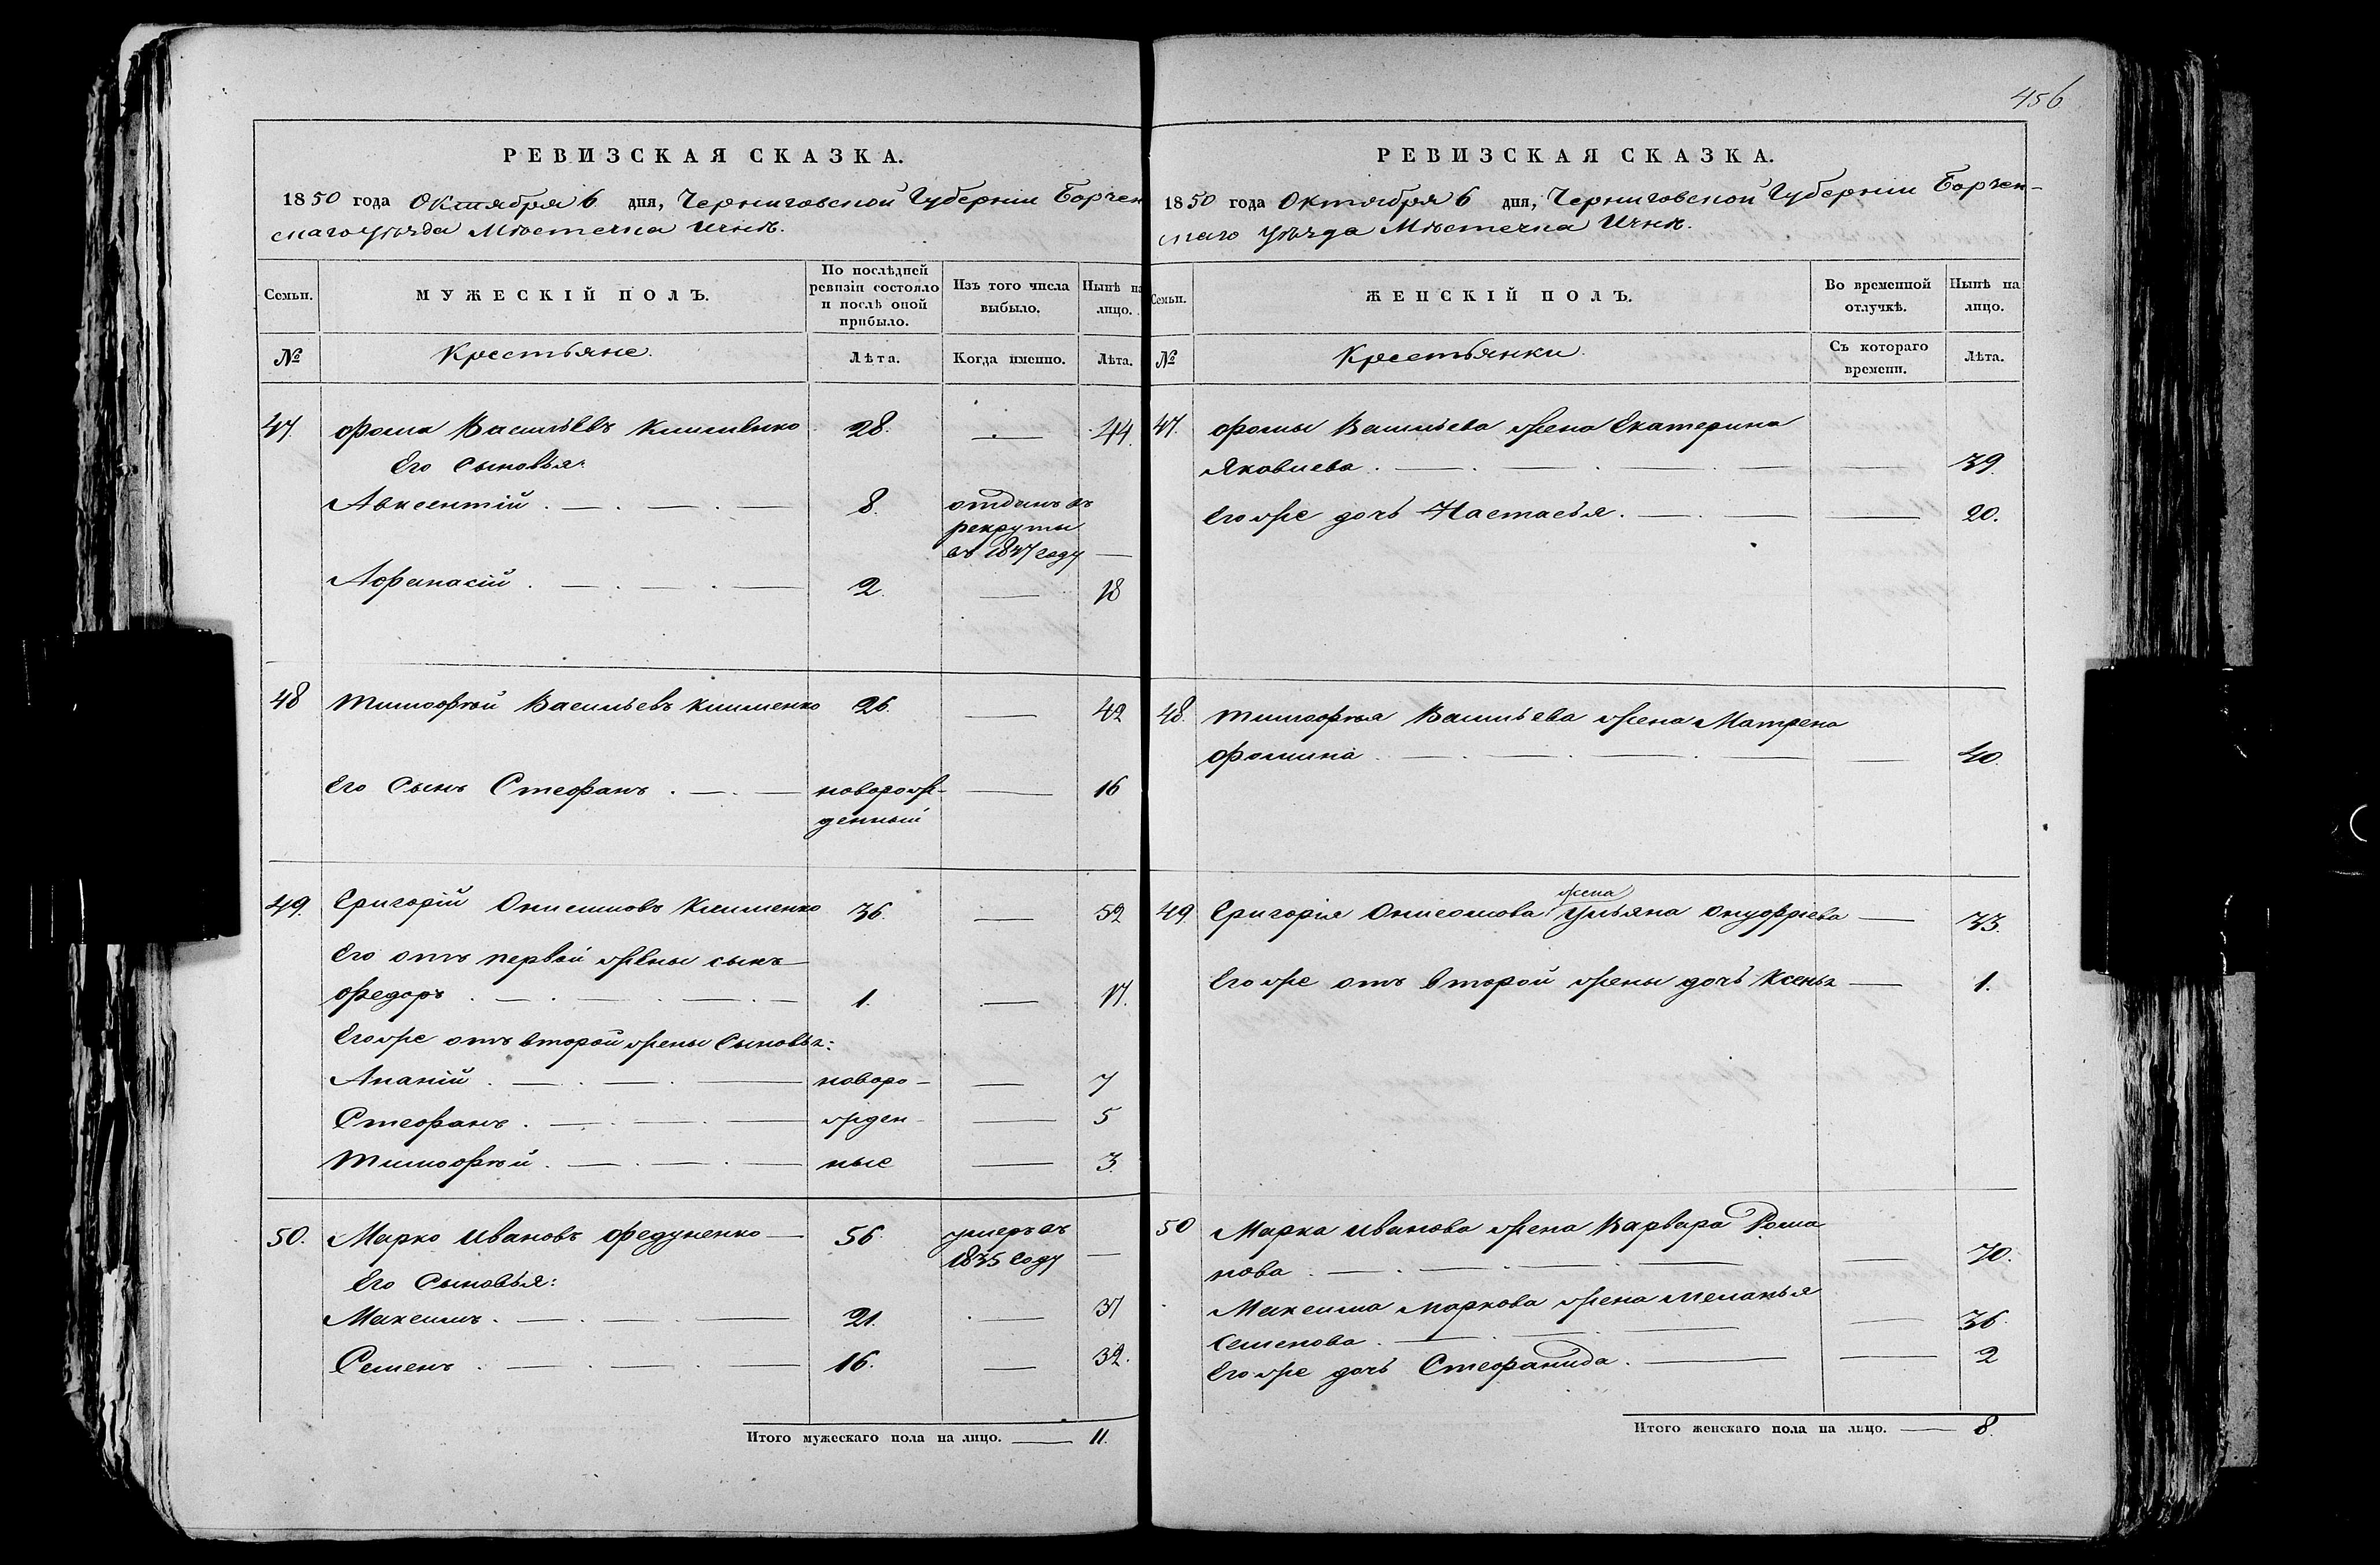 456
РЕВИЗСКАЯ СКАЗКА.
1850 года Октября 6 дня, Черниговской Губерніи Борзен
скаго уѣзда Мѣстечка Ични.
Семьи. МУЖЕСКІЙ ПОЛЪ. По послѣдней ревизіи состояло и послѣ оной прибыло. Изъ того числа выбыло. Нынѣ на лицо.
№ Крестьяне. Лѣта. Когда именно. Лѣта.
47. Фома Васильевъ Клименко 28. — 44.
Его Сыновья:
Авксентій . — . — . — 8. отданъ въ
рекруты
въ 1847 году —
Афанасій . — . — . — 2. — 18
48 Тимофѣй Васильевъ Клименко 26. — 42
Его Сынъ Стефанъ . — . — новорож- — 16
денный
49. Григорій Онисимовъ Клименко 36. — 52
Его отъ первой жены сынъ
Федоръ . — . — . — . — 1. — 17.
Его же отъ второй жены Сыновья:
Ананій . — . — . — новоро- — 7
Стефанъ . — . — . — жден- — 5
Тимофѣй . — . — . — ные — 3.
50. Марко Ивановъ Федуненко — 56 умеръ въ
1835 году —
Его Сыновья:
Максимъ . — . — . — 21. — 37
Семенъ . — . — . — 16. — 32.
Итого мужескаго пола на лицо. — 11.
РЕВИЗСКАЯ СКАЗКА.
1850 года Октября 6 дня, Черниговской Губерніи Борзен-
скаго уѣзда Мѣстечка Ични.
Семьи. ЖЕНСКІЙ ПОЛЪ. Во временной отлучкѣ. Нынѣ на лицо.
№ Крестьянки. Съ котораго времени. Лѣта.
47. Фомы Васильева жена Екатерина
Яковлева . — . — . — — 39.
Его же дочь Настасья . — . — — 20.
48. Тимофѣя Васильева жена Матрена
Фомина . — . — . — . — — 40.
жена
49. Григорія Онисомова Ульяна Онуфріева — 33.
Его же отъ второй жены дочь Ксенья — 1.
50 Марка Иванова жена Варвара Рома
нова . — . — . — . — — 70.
Максима Маркова жена Меланья
Семенова . — . — . — — 36.
Его же дочь Стефанида . — — 2
Итого женскаго пола на лицо. — 8.